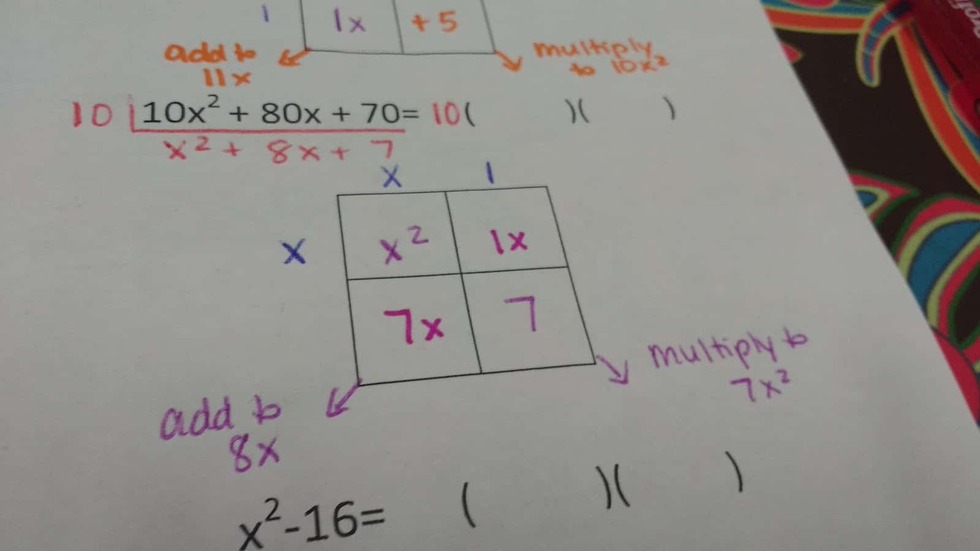 1 1x +5
add to
11x
multiply
to 10x²
10 10x² + 80x + 70= 10( )( )
x² + 8x + 7
x 1
x x² 1x
7x 7
add to
8x
multiply to
7x²
x²-16= ( )( )